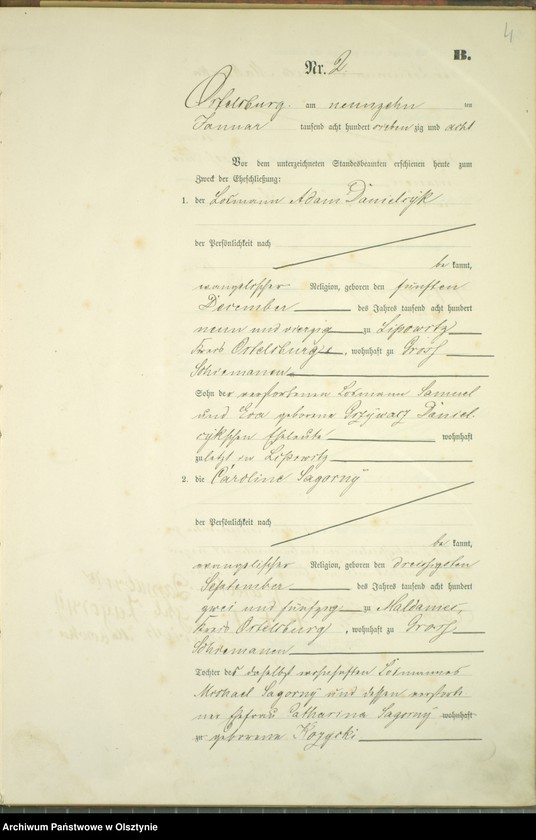 4
B.
Nr. 2.
Ortelsburg am neunzehn ten
Januar tausend acht hundert sieben zig und acht
Vor dem unterzeichneten Standesbeamten erschienen heute zum
Zweck der Eheschließung:
1. der Losmann Adam Danielzyk
der Persönlichkeit nach
be kannt,
evangelischer Religion, geboren den fünften
December des Jahres tausend acht hundert
neun und vierzig zu Lipowitz
Kreis Ortelsburg, wohnhaft zu Groß
Schiemanen
Sohn der verstorbenen Losmann Samuel
und Eva geborene Daniel
czykschen Eheleute wohnhaft
zuletzt in Lipowitz
2. die Caroline Sagorny
der Persönlichkeit nach
be kannt,
evangelischer Religion, geboren den dreißigsten
September des Jahres tausend acht hundert
zwei und fünfzig zu Maldanen,
Kreis Ortelsburg, wohnhaft zu Groß
Schiemanen
Tochter des daselbst wohnhaften Losmannes
Michael Sagorny und dessen verstorbe
ner Ehefrau Catharina Sagorny wohnhaft
zu geborene
Archiwum Państwowe w Olsztynie